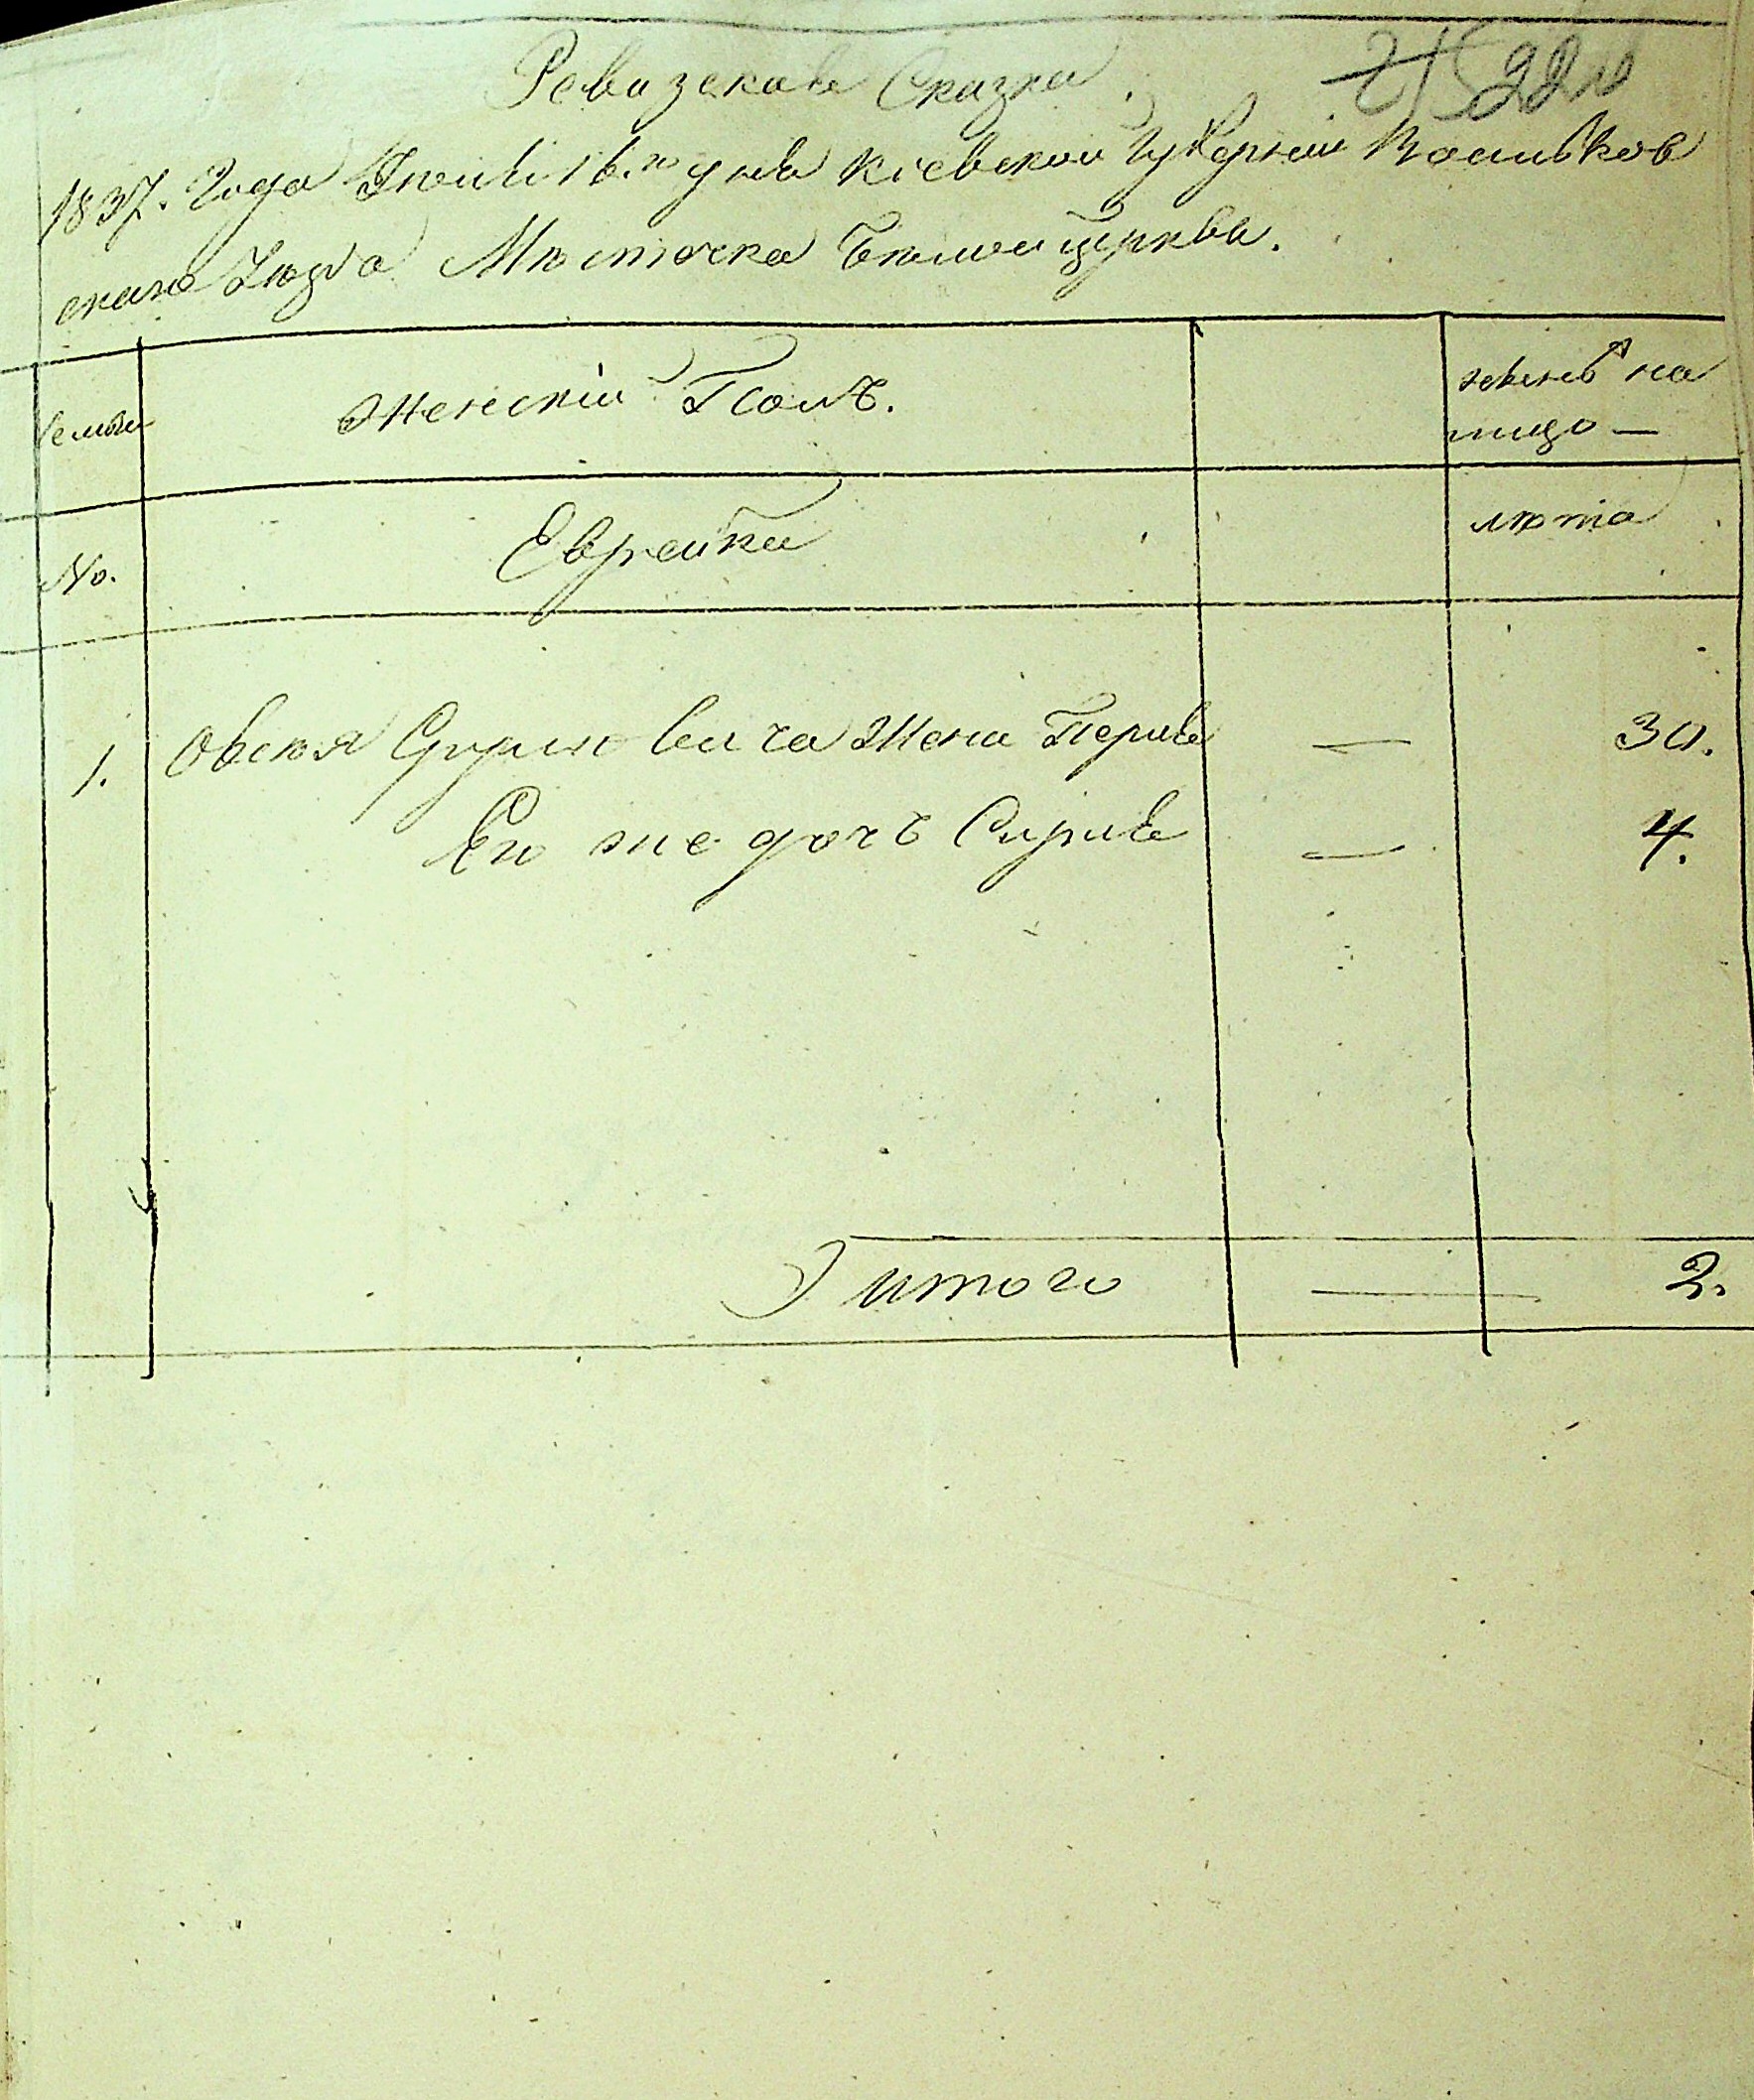 Ревизская Сказка.
1837. Года Июля 16.го дня Кіевской Губерніи Васильков
скаго Уезда Мѣстечка Белой Церквы.
Семьи
Женскій Полъ.
жень на
лицо —
No.
Еврейки
лѣта
1. Овсея вича Жена Перля — 30.
Его же дочъ Сурля — 4.
Итого — 2.